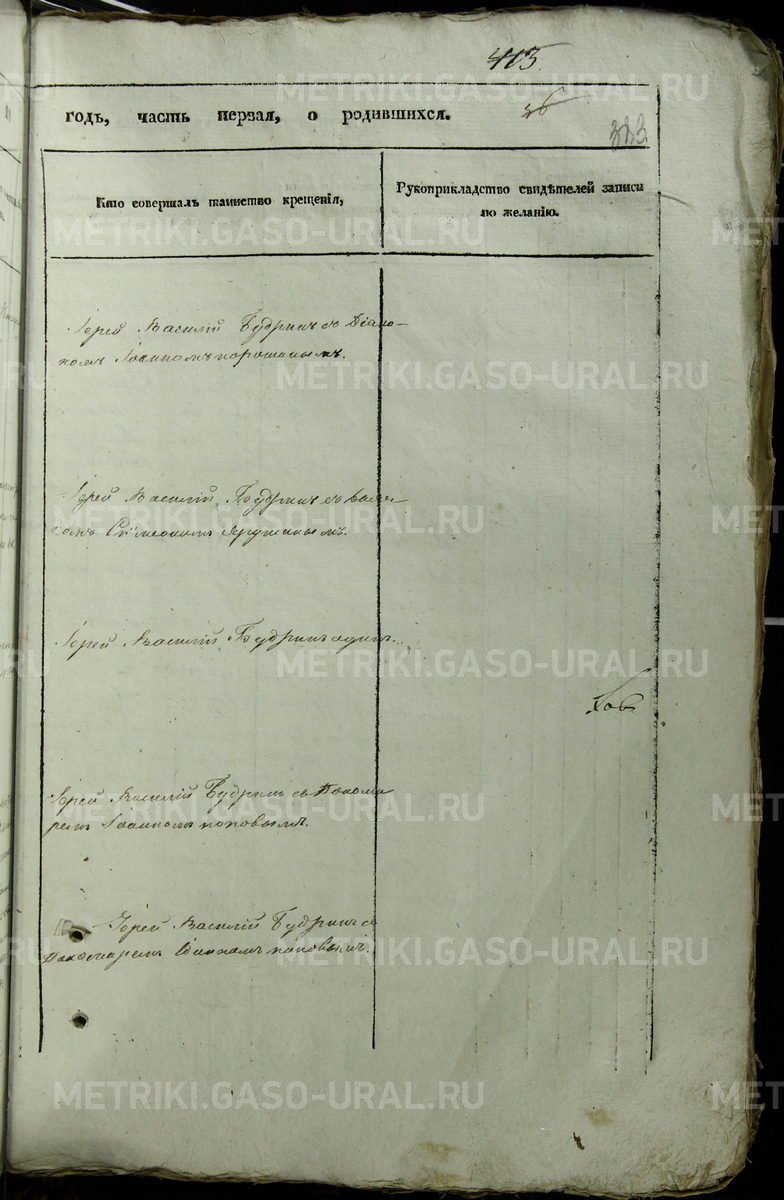 413
36
годъ, часть первая, о родившихся.
Кто совершалъ таинство крещенія,
Рукоприкладство свидѣтелей записи
по желанію.
Іерей Василій Будринъ съ Діако-
номъ Іоанномъ
Іерей Василій Будринъ съ
Сѵмеономъ
Іерей Василій Будринъ одинъ.
Іерей Василій Будринъ съ Понома
ремъ Іоанномъ Поповымъ.
Іерей Василій Будринъ съ
Пономаремъ Іоанномъ Поповымъ.
METRIKI.GASO-URAL.RU